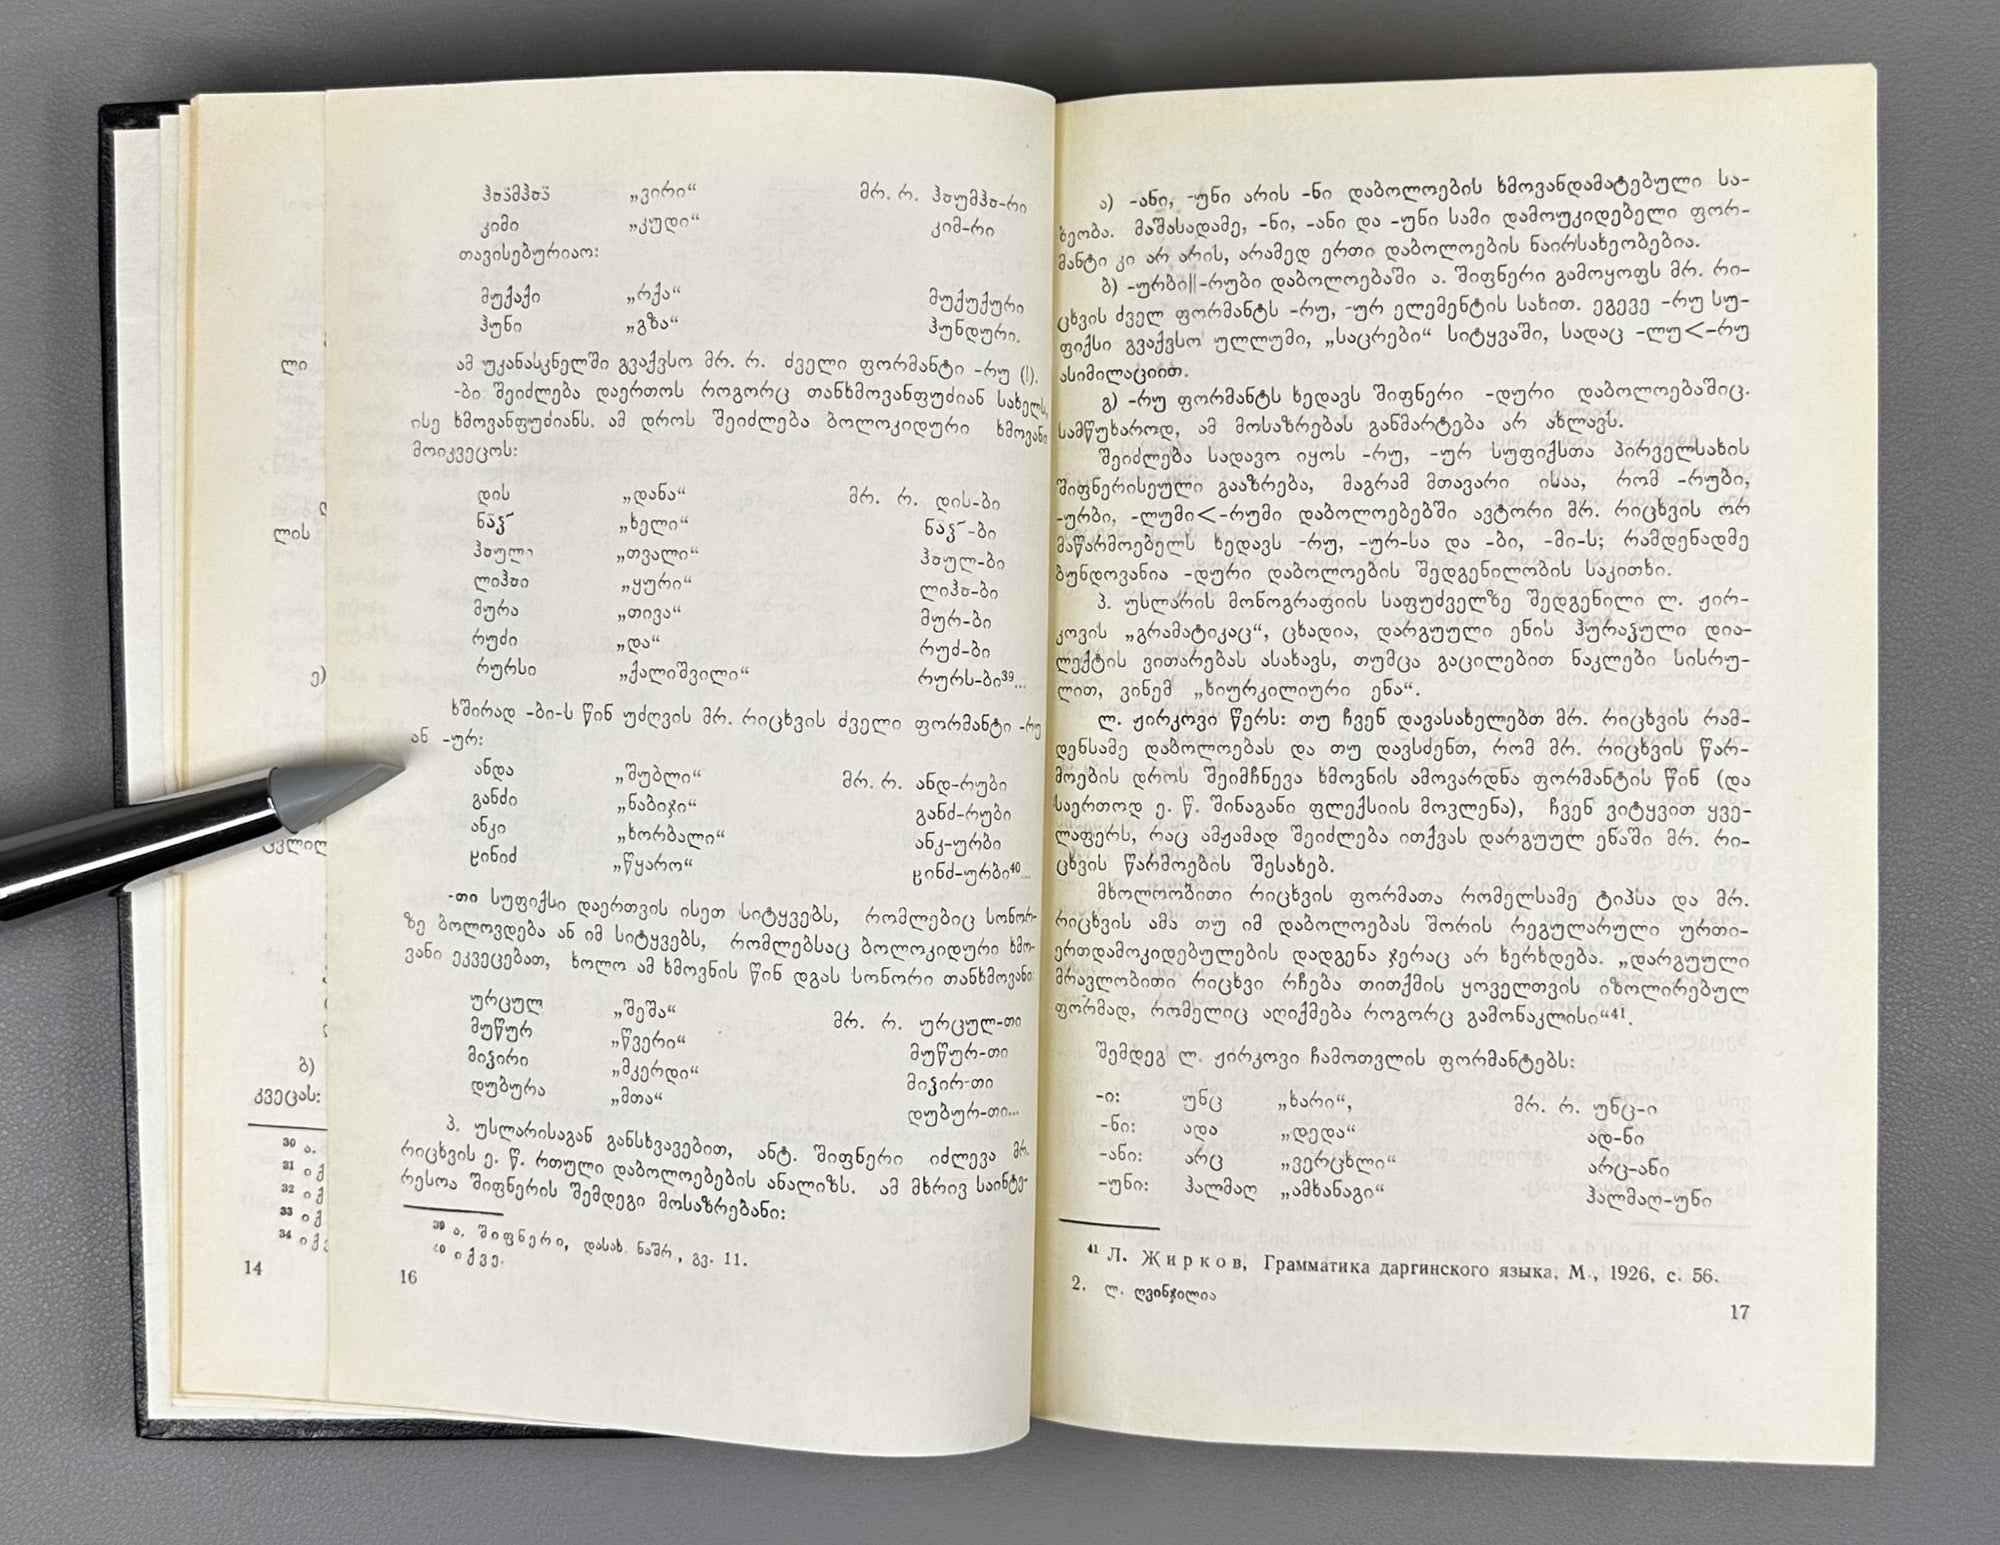 ლი
ლის
ე)
ბ)
კვეცას:
30 ა.
31 იქ
32 იქ
33 იქ
34 იქვ
14
„ვირი“ მრ. რ.
კიმი „კუდი“ კიმ-რი
თავისებურიაო:
მუქაქი „რქა“ მუქუქური
ჰუნი „გზა“ ჰუნდური.
ამ უკანასკნელში გვაქვსო მრ. რ. ძველი ფორმანტი -რუ (!).
-ბი შეიძლება დაერთოს როგორც თანხმოვანფუძიან სახელს,
ისე ხმოვანფუძიანს. ამ დროს შეიძლება ბოლოკიდური ხმოვანი
მოიკვეცოს:
დის „დანა“ მრ. რ. დის-ბი
„ხელი“
„თვალი“
„ყური“
მურა „თივა“ მურ-ბი
რუძი „და“ რუძ-ბი
რურსი „ქალიშვილი“ რურს-ბი39...
ხშირად -ბი-ს წინ უძღვის მრ. რიცხვის ძველი ფორმანტი -რუ
ან -ურ:
ანდა „შუბლი“ მრ. რ. ანდ-რუბი
განძი „ნაბიჯი“ განძ-რუბი
ანკი „ხორბალი“ ანკ-ურბი
ჸინიძ „წყარო“ ჸინძ-ურბი40...
-თი სუფიქსი დაერთვის ისეთ სიტყვებს, რომლებიც სონორ-
ზე ბოლოვდება ან იმ სიტყვებს, რომლებსაც ბოლოკიდური ხმო-
ვანი ეკვეცებათ, ხოლო ამ ხმოვნის წინ დგას სონორი თანხმოვანი:
ურცულ „შეშა“ მრ. რ. ურცულ-თი
მუწურ „წვერი“ მუწურ-თი
მიჴირი „მკერდი“ მიჴირ-თი
დუბურა „მთა“ დუბურ-თი...
პ. უსლარისაგან განსხვავებით, ანტ. შიფნერი იძლევა მრ.
რიცხვის ე. წ. რთული დაბოლოებების ანალიზს. ამ მხრივ საინტე-
რესოა შიფნერის შემდეგი მოსაზრებანი:
39 ა. შიფნერი, დასახ. ნაშრ., გვ. 11.
40 იქვე.
16
ა) -ანი, -უნი არის -ნი დაბოლოების ხმოვანდამატებული სა-
ხეობა. მაშასადამე, -ნი, -ანი და -უნი სამი დამოუკიდებელი ფორ-
მანტი კი არ არის, არამედ ერთი დაბოლოების ნაირსახეობებია.
ბ) -ურბი||-რუბი დაბოლოებაში ა. შიფნერი გამოყოფს მრ. რი-
ცხვის ძველ ფორმანტს -რუ, -ურ ელემენტის სახით. ეგევე -რუ სუ-
ფიქსი გვაქვსო ულლუმი, „საცრები“ სიტყვაში, სადაც -ლუ<-რუ
ასიმილაციით.
გ) -რუ ფორმანტს ხედავს შიფნერი -დური დაბოლოებაშიც.
სამწუხაროდ, ამ მოსაზრებას განმარტება არ ახლავს.
შეიძლება სადავო იყოს -რუ, -ურ სუფიქსთა პირველსახის
შიფნერისეული გააზრება, მაგრამ მთავარი ისაა, რომ -რუბი,
-ურბი, -ლუმი<-რუმი დაბოლოებებში ავტორი მრ. რიცხვის ორ
მაწარმოებელს ხედავს -რუ, -ურ-სა და -ბი, -მი-ს; რამდენადმე
ბუნდოვანია -დური დაბოლოების შედგენილობის საკითხი.
პ. უსლარის მონოგრაფიის საფუძველზე შედგენილი ლ. ჟირ-
კოვის „გრამატიკაც“, ცხადია, დარგუული ენის ჰურაჴული დია-
ლექტის ვითარებას ასახავს, თუმცა გაცილებით ნაკლები სისრუ-
ლით, ვინემ „ხიურკილიური ენა“.
ლ. ჟირკოვი წერს: თუ ჩვენ დავასახელებთ მრ. რიცხვის რამ-
დენსამე დაბოლოებას და თუ დავსძენთ, რომ მრ. რიცხვის წარ-
მოების დროს შეიმჩნევა ხმოვნის ამოვარდნა ფორმანტის წინ (და
საერთოდ ე. წ. შინაგანი ფლექსიის მოვლენა), ჩვენ ვიტყვით ყვე-
ლაფერს, რაც ამჟამად შეიძლება ითქვას დარგუულ ენაში მრ. რი-
ცხვის წარმოების შესახებ.
მხოლოობითი რიცხვის ფორმათა რომელსამე ტიპსა და მრ.
რიცხვის ამა თუ იმ დაბოლოებას შორის რეგულარული ურთი-
ერთდამოკიდებულების დადგენა ჯერაც არ ხერხდება. „დარგუული
მრავლობითი რიცხვი რჩება თითქმის ყოველთვის იზოლირებულ
ფორმად, რომელიც აღიქმება როგორც გამონაკლისი“41.
შემდეგ ლ. ჟირკოვი ჩამოთვლის ფორმანტებს:
-ი: უნც „ხარი“, მრ. რ. უნც-ი
-ნი: ადა „დედა“ ად-ნი
-ანი: არც „ვერცხლი“ არც-ანი
-უნი: ჰალმაღ „ამხანაგი“ ჰალმაღ-უნი
41 Л. Жирков, Грамматика даргинского языка, М., 1926, с. 56.
2. ლ. ღვინჯილია
17